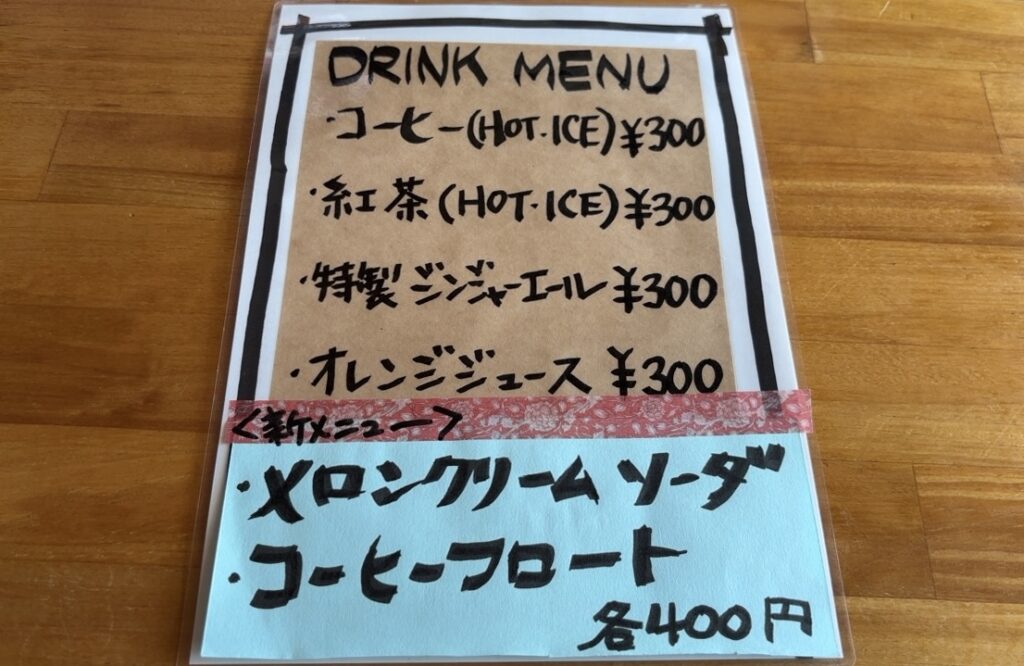 DRINK MENU
・コーヒー(HOT・ICE)¥300
・紅茶(HOT・ICE)¥300
・特製ジンジャーエール¥300
・オレンジジュース ¥300
<新メニュー>
・メロンクリームソーダ
・コーヒーフロート
各400円